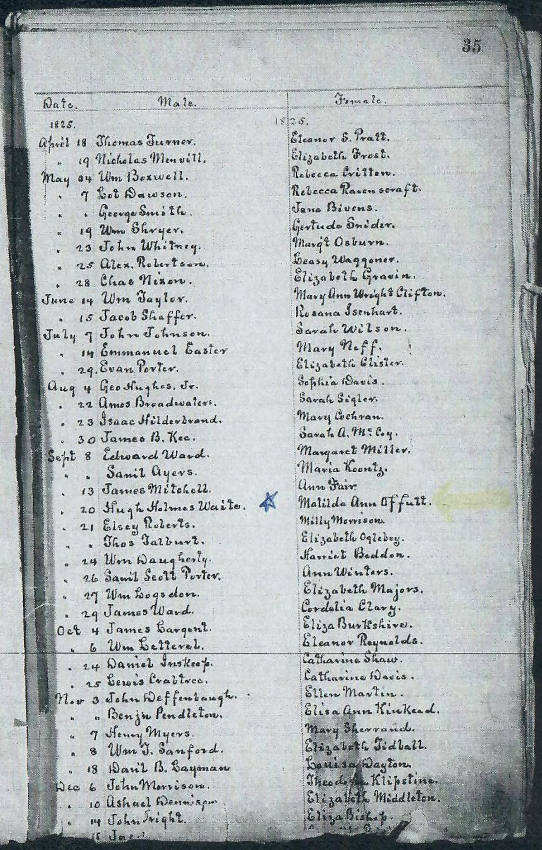 35
Date. Male. Female.
1825. 1825.
April 18 Thomas Turner. Eleanor S. Pratt.
" 19 Nicholas Menvill. Elizabeth Frost.
May 04 Wm Boxwell. Rebecca Critten.
" 7 Lot Dawson. Rebecca Ravenscraft.
" " George Smith. Jane Bivens.
" 19 Wm Shryer. Gertude Snider.
" 23 John Whitney. Margt Osburn.
" 25 Alex. Robertson. Leasy Waggoner.
" 28 Chas Nixon. Elizabeth Gravin.
June 14 Wm Taylor. Mary Ann Wright Clifton.
" 15 Jacob Shaffer. Rosana Isenhart.
July 7 John Johnson. Sarah Wilson.
" 14 Emmanuel Easter Mary Neff.
" 29. Evan Porter. Elizabeth Clister.
Aug 4 Geo Hughes, Jr. Sophia Davis.
" 22 Amos Broadwaters. Sarah Sigler.
" 23 Isaac Hilderbrand. Mary Cochran.
" 30 James B. Kee. Sarah A. McCoy.
Sept 8 Edward Ward. Margaret Miller.
" " Saml Ayers. Maria Koontz.
" 13 James Mitchell. Ann Fair.
" 20 Hugh Holmes Waite. Matilda Ann Offutt.
" 21 Elsey Roberts. Milly Morrison.
" " Thos Talburt. Elizabeth Oglebey.
" 24 Wm Daugherty. Harriet Beddon.
" 26 Saml Scott Porter. Ann Winters.
" 27 Wm Logsdon. Elizabeth Majors.
" 29 James Ward. Cordelia Clary.
Oct 4 James Largent. Eliza Burkshire.
" 6 Wm Letterel. Eleanor Reynolds.
" 24 Daniel Inskeep. Catharine Shaw.
" 25 Lewis Crabtree. Catharine Davis.
Nov 3 John Deffenbaugh. Ellen Martin.
" " Benjn Pendleton. Elisa Ann Kinkead.
" 7 Henry Myers. Mary Sherrard.
" 8 Wm T. Sanford. Elizabeth Tidball.
" 18 Danl B. Layman Louisa Dayton.
Dec 6 John Morrison. Klipstine.
" 10 Ashael Elizabeth Middleton.
" 14 John Eliza Bishop.